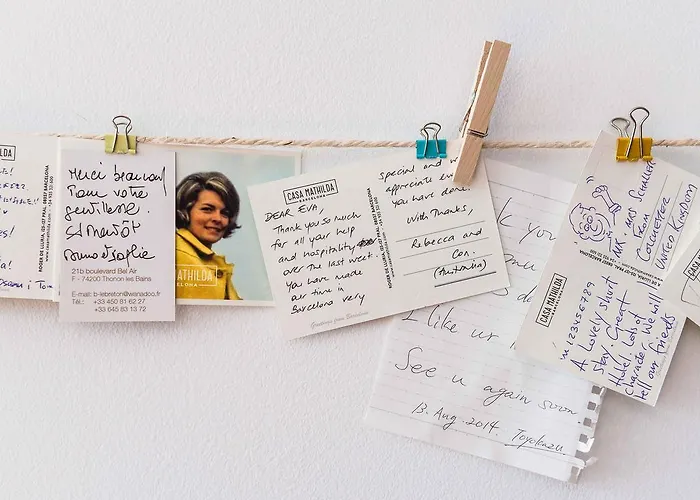 ROGER DE LLURIA, 125-127 PRAL. 08037 BARCELONA
Merci beaucoup
Pour votre
gentillesse.
21b boulevard Bel Air
F - 74200 Thonon les Bains
E-mail: b-lebreton@wanadoo.fr
Tél.: +33 450 81 62 27
+33 645 83 13 72
CASA MATHILDA
BARCELONA
CASA MATHILDA
DEAR EVA,
Thank you so much
for all your help
and hospitality
over the last week.
You have made
our time in
Barcelona very
Greetings from Barcelona
special and we
appreciate
you have done.
With Thanks,
Rebecca and
Con.
(Australia)
you
I like us
See u again soon
13. Aug. 2014.
Toyokazu
CASA MATHILDA
MR + MRS
from
COLCHESTER
UNITED KINGDOM
123456789
A lovely short
stay. Great
Hotel. Lots of
character. We will
tell our friends
CASA MATHILDA